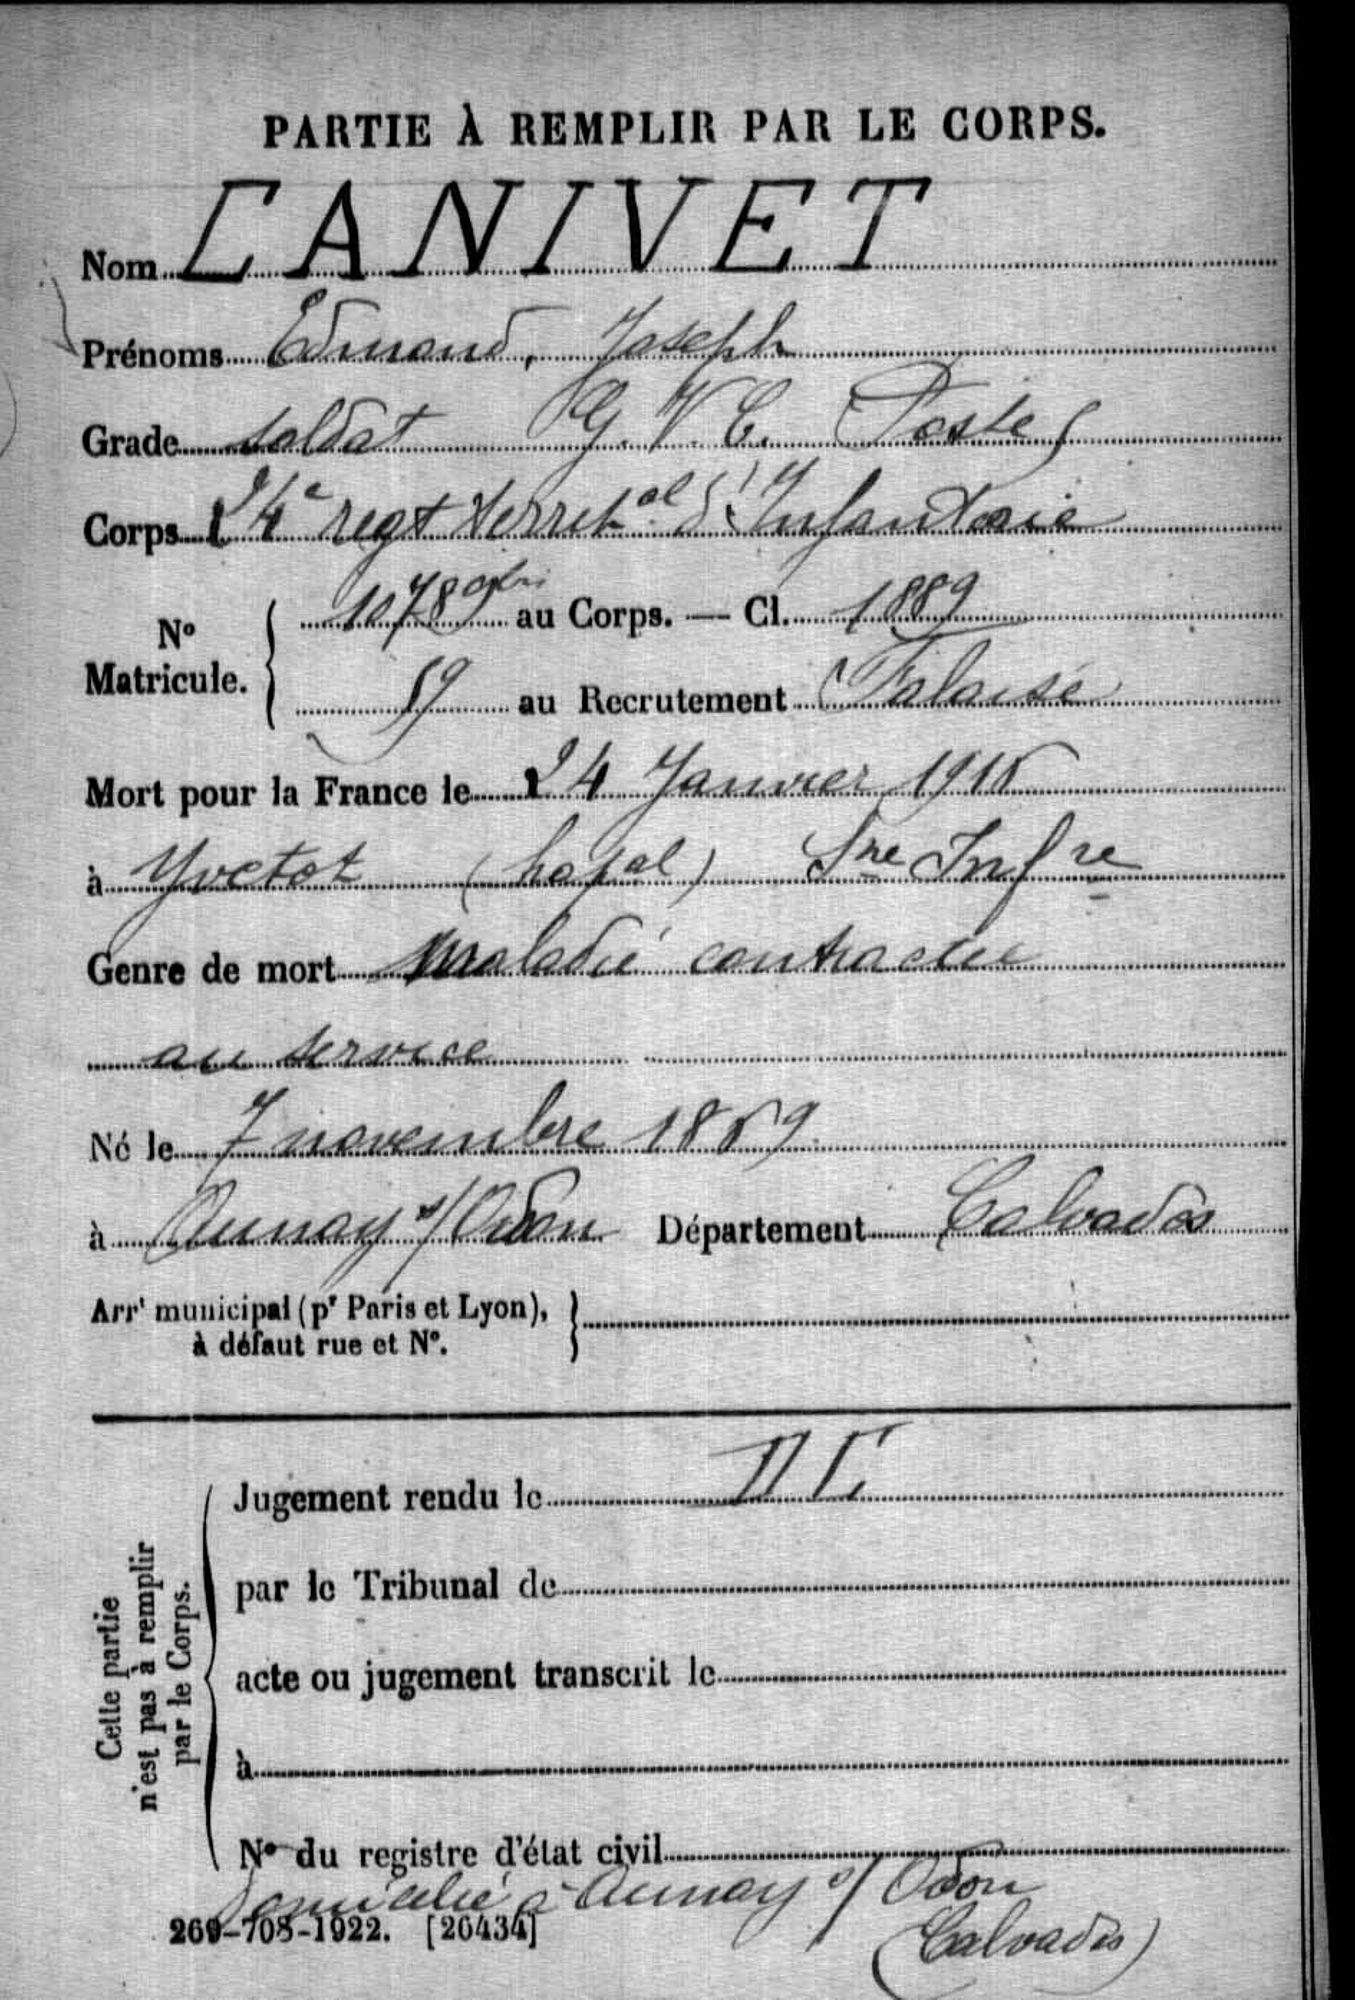 PARTIE À REMPLIR PAR LE CORPS.
Nom CANIVET
Prénoms Edmond, Joseph
Grade soldat G. V. C. Postes
Corps 24e regt territal d'Infanterie
No Matricule. 10789 au Corps. — Cl. 1889
59 au Recrutement Falaise
Mort pour la France le 24 Janvier 1915
à Yvetot (hopal) Sne Infre
Genre de mort Maladie contractée
au service
Né le 7 novembre 1869
à Aunay s/Odon Département Calvados
Arrt municipal (pr Paris et Lyon),
à défaut rue et No.
Cette partie
n'est pas à remplir
par le Corps.
Jugement rendu le
par le Tribunal de
acte ou jugement transcrit le
à
No du registre d'état civil
domicilié à Aunay s/ Odon
269-708-1922. [26434]
(Calvados)